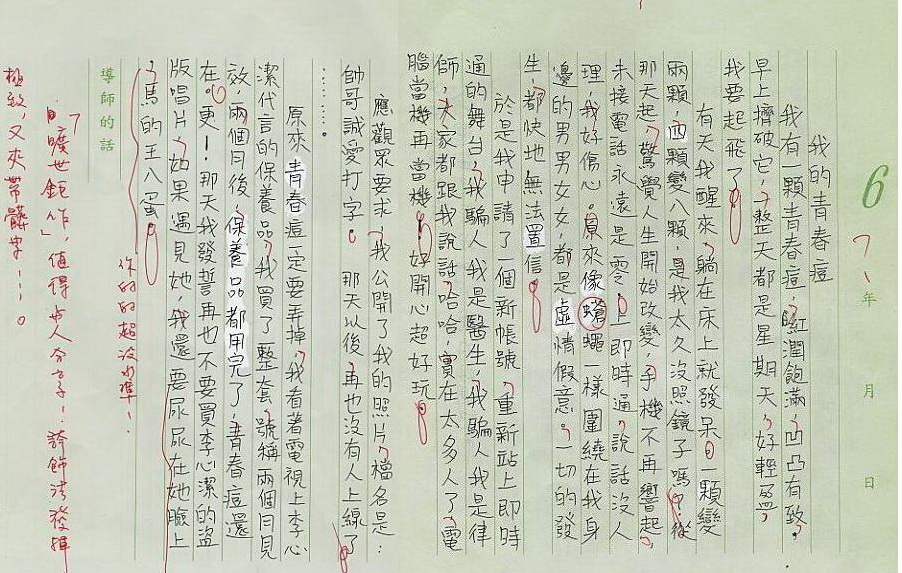 6
年 月 日
我的青春痘
我有一顆青春痘，紅潤飽滿，凹凸有致，
早上擠破它，整天都是星期天，好輕盈，
我要起飛了。
有天我醒來，躺在床上就發呆。一顆變
兩顆，四顆變八顆，是我太久沒照鏡子嗎？從
那天起，驚覺人生開始改變，手機不再響起，
未接電話永遠是零。上即時通，說話沒人
理，我好傷心。原來像蟾蠅一樣圍繞在我身
邊的男男女女，都是虛情假意。一切的發
生，都快地無法置信。
於是我申請了一個新帳號，重新站上即時
通的舞台，我騙人我是醫生，我騙人我是律
師，大家都跟我說話，哈哈，實在太多人了，電
腦當機再當機，好開心超好玩。
應觀眾要求，我公開了我的照片，檔名是：
帥哥誠愛打字。那天以後，再也沒有人上線了
……。
原來青春痘一定要弄掉，我看著電視上李心
潔代言的保養品，我買了整套，號稱兩個月見
效，兩個月後，保養品都用完了，青春痘還
在。更！那天我發誓再也不要買李心潔的盜
版唱片，如果遇見她，我還要尿尿在她臉上
，馬的王八蛋。
你的的超沒水準！
導師的話
「曠世鉅作」，值得與人分享！誇飾法發揮
極致，又夾帶髒字！！。